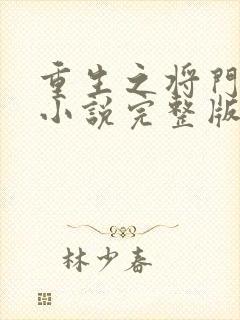 重生之将門
小說完整版
林少春